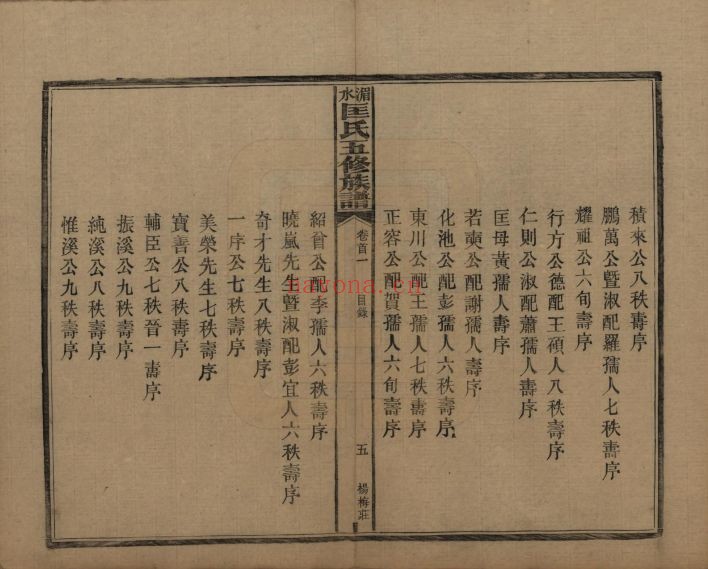 積來公八秩壽序
鵬萬公暨淑配羅孺人七秩壽序
耀祖公六旬壽序
行方公德配王碩人八秩壽序
仁則公淑配蕭孺人壽序
匡母黃孺人壽序
若奭公配謝孺人壽序
化池公配彭孺人六秩壽序
東川公配王孺人七秩壽序
正容公配賀孺人六旬壽序
湄水匡氏五修族譜
卷首一
目錄
五
楊梅莊
紹首公配李孺人六秩壽序
曉嵐先生暨淑配彭宜人六秩壽序
奇才先生八秩壽序
一序公七秩壽序
美榮先生七秩壽序
寶善公八秩壽序
輔臣公七秩晉一壽序
振溪公九秩壽序
純溪公八秩壽序
惟溪公九秩壽序